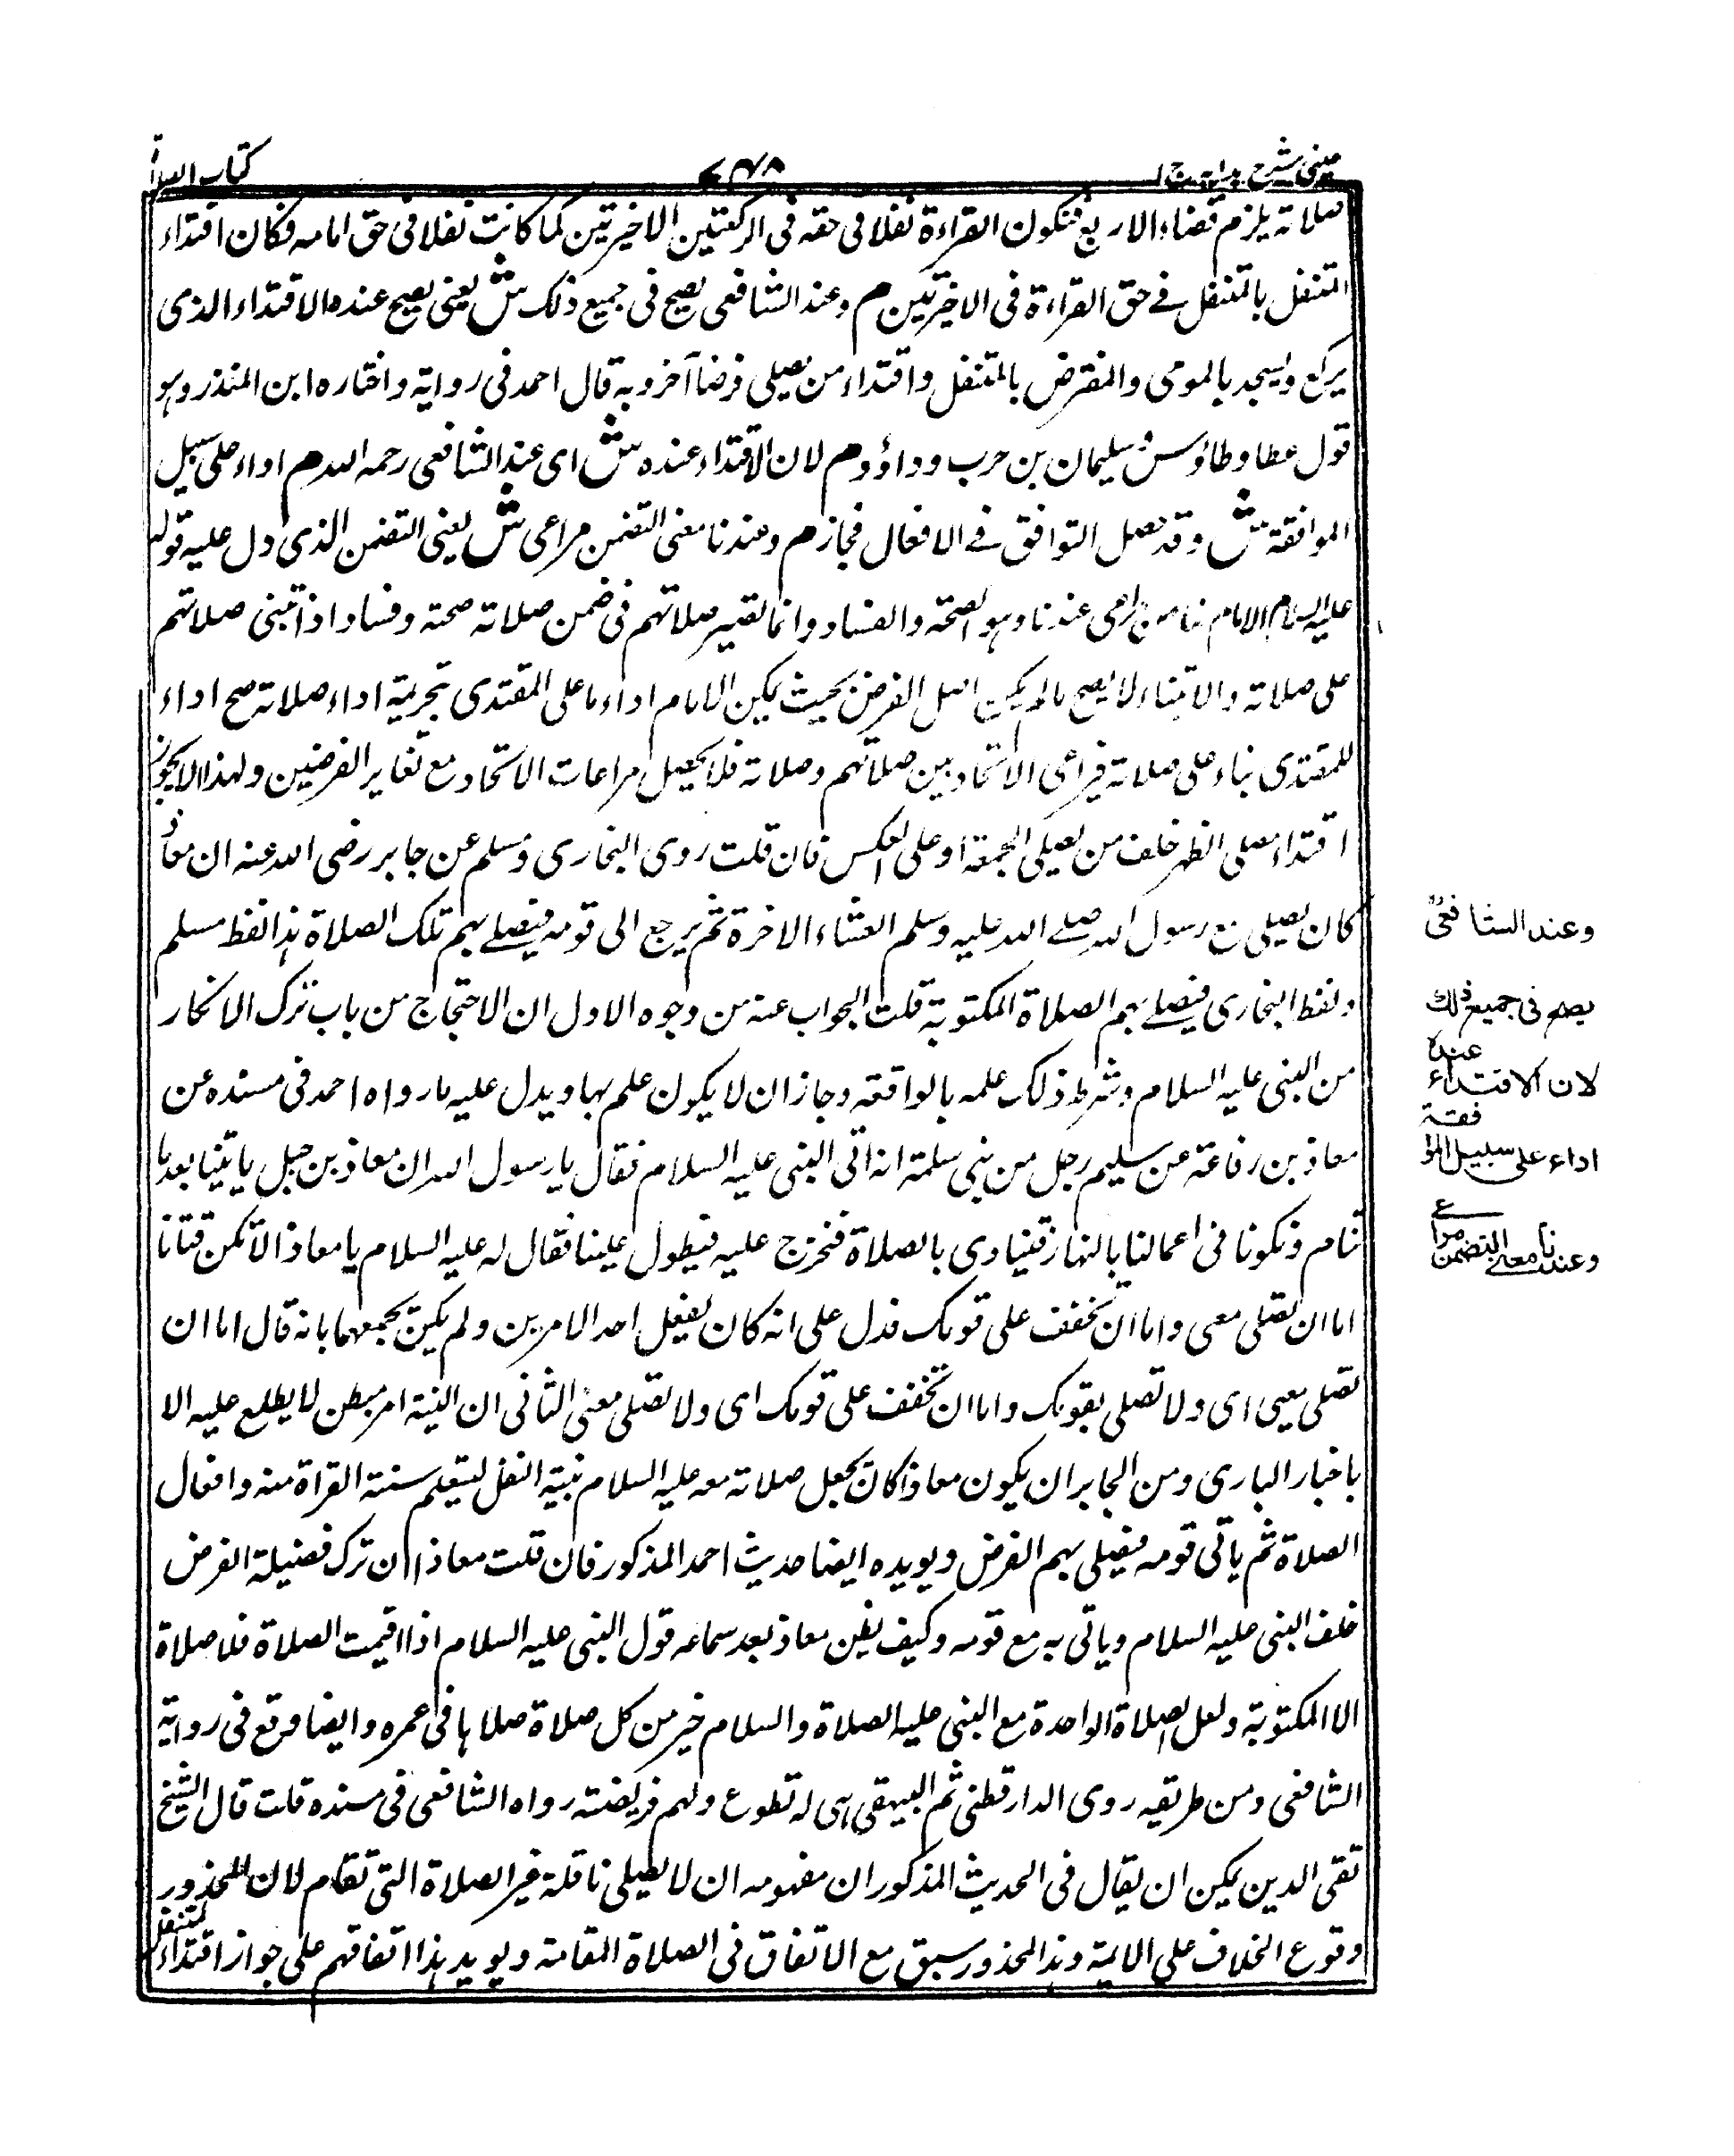 عینی شرح ہدایہ ج ۱
۷۴۸
کتاب الصلاة
صلاته يلزم قضاء الاربع فتكون القراءة نفلا فى حقه فى الركعتين الاخيرتين كما كانت نفلا فى حق امامه فكان اقتداء
المتنفل بالمتنفل فے حق القراءة فى الاخيرتين م وعند الشافعى يصح فى جميع ذلك ش يعنى يصح عنده الاقتداء الذى
يركع ويسجد بالمومى والمفترض بالمتنفل واقتداء من يصلى فرضا آخر وبه قال احمد فى رواية واختاره ابن المنذر وهو
قول عطا وطاؤس وسليمان بن حرب وداؤد م لان الاقتداء عنده ش اى عند الشافعى رحمه الله م اداء على سبيل
الموافقة ش وقد حصل التوافق فے الافعال فجاز م وعندنا معنى التضمن مراعى ش يعنى التضمن الذى دل عليه قوله
عليه السلام الامام ضامن مراعى عندنا وهو الصحة والفساد وانما تصير صلاتهم فى ضمن صلاته صحة وفسادا اذا تبنى صلاتهم
على صلاته والابتناء لا يصح مالم يكن اصل الفرض بحيث يمكن الامام اداء ما على المقتدى بتحريمة اداء صلاته صح اداء
للمقتدى بناء على صلاته فيراعى الاتحاد بين صلاتهم وصلاته فلا يحصل مراعات الاتحاد مع تغاير الفرضين ولهذا لا يجوز
اقتداء مصلى الظهر خلف من يصلى الجمعة او على العكس فان قلت روى البخارى ومسلم عن جابر رضى الله عنه ان معاذ
كان يصلى مع رسول الله صلے الله عليه وسلم العشاء الاخرة ثم يرجع الى قومه فيصلے بهم تلك الصلاة هذا لفظ مسلم
ولفظ البخارى فيصلے بهم الصلاة المكتوبة قلت الجواب عنه من وجوه الاول ان الاحتجاج من باب ترك الانكار
من النبى عليه السلام وشرط ذلك علمه بالواقعه وجاز ان لا يكون علم بها ويدل عليه ما رواه احمد فى مسنده عن
معاذ بن رفاعة عن سليم رجل من بنى سلمة انه اتى النبى عليه السلام فقال يا رسول الله ان معاذ بن جبل ياتينا بعد ما
تنام ونكونا فى اعمالنا بالنهار فينادى بالصلاة فنخرج عليه فيطول علينا فقال له عليه السلام يا معاذ لا تكن فتانا
اما ان تصلى معى واما ان تخفف على قومك فدل على انه كان يفعل احد الامرين ولم يكن يجمعهما بانه قال اما ان
تصلى معى اى ولا تصلى بقومك واما ان تخفف على قومك اى ولا تصلى معى الثانى ان النية امر مبطن لا يطلع عليه الا
باخبار البارى ومن الجابر ان يكون معاذ كان يجعل صلاته معه عليه السلام بنية النفل ليتعلم سنة القراة منه وافعال
الصلاة ثم ياتى قومه فيصلى بهم الفرض ويويده ايضا حديث احمد المذكور فان قلت معاذ ان ترك فضيلة الفرض
خلف النبى عليه السلام وياتى به مع قومه وكيف يظن معاذ بعد سماعه قول النبى عليه السلام اذا اقيمت الصلاة فلا صلاة
الا المكتوبة ولعل الصلاة الواحدة مع النبى عليه الصلاة والسلام خير من كل صلاة صلاها فى عمره وايضا وقع فى رواية
الشافعى ومن طريقه روى الدارقطنى ثم البيهقى هى له تطوع ولهم فريضته رواه الشافعى فى مسنده قلت قال الشيخ
تقى الدين يمكن ان يقال فى الحديث المذكور ان مفهومه ان لا يصلى نافلة غير الصلاة التى تقام لان المحذور
وقوع الخلاف على الايمة وهذا المحذور سبق مع الاتفاق فى الصلاة المقامة ويويد هذا اتفاقهم على جواز اقتداء المتنفل
وعند الشافعى
يصح فى جميع ذلك
لان الاقتداء عنده
اداء على سبيل الموافقة
وعندنا معنے التضمن مراعى